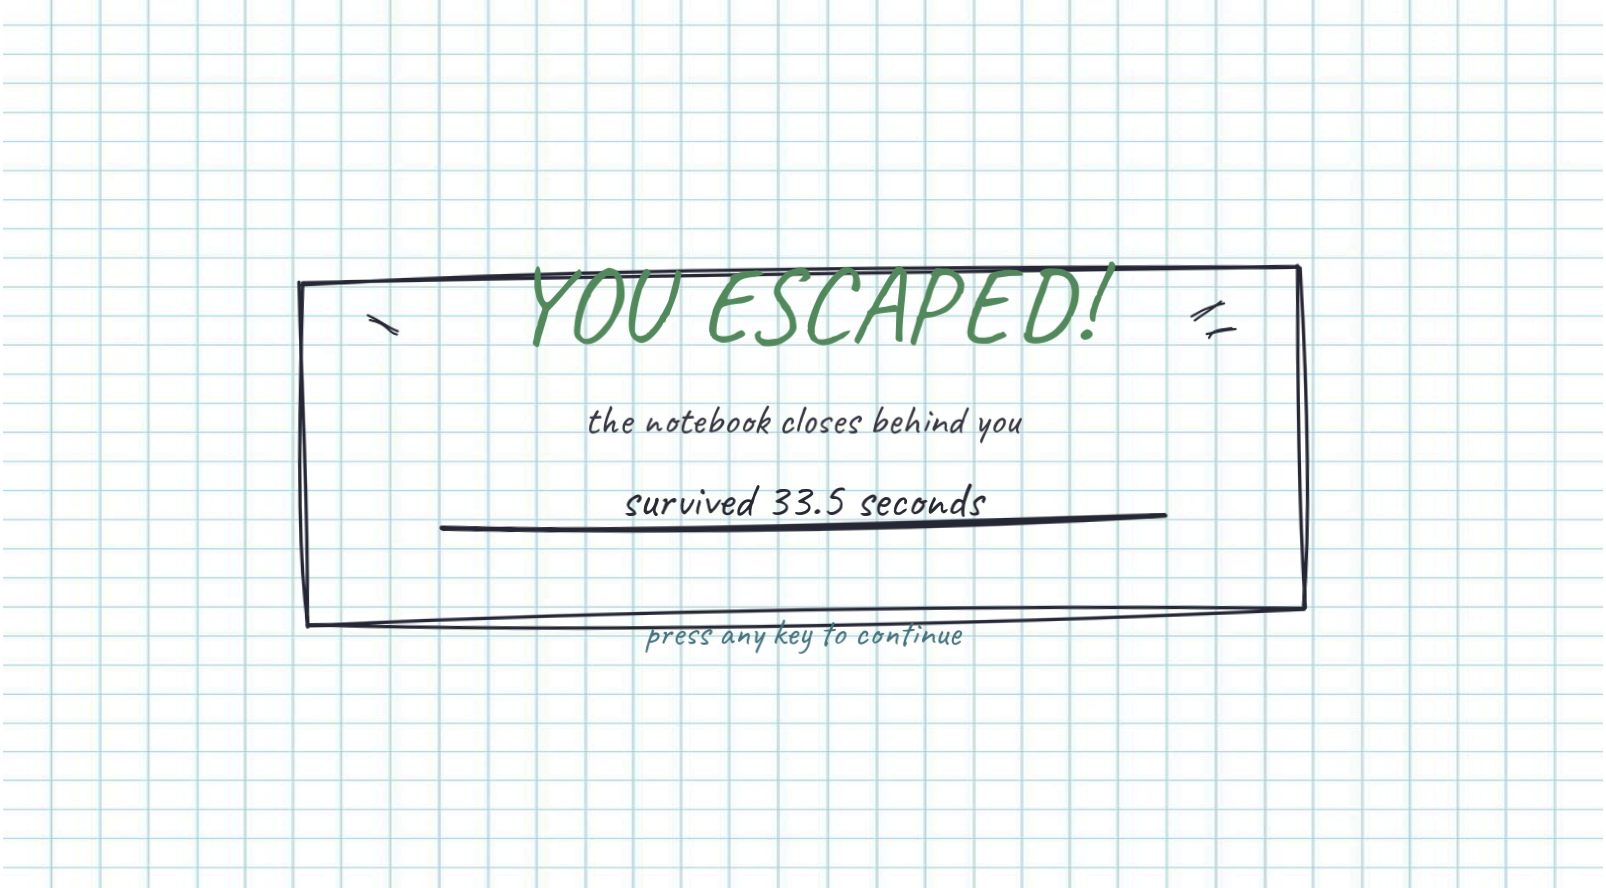 YOU ESCAPED!
the notebook closes behind you
survived 33.5 seconds
press any key to continue